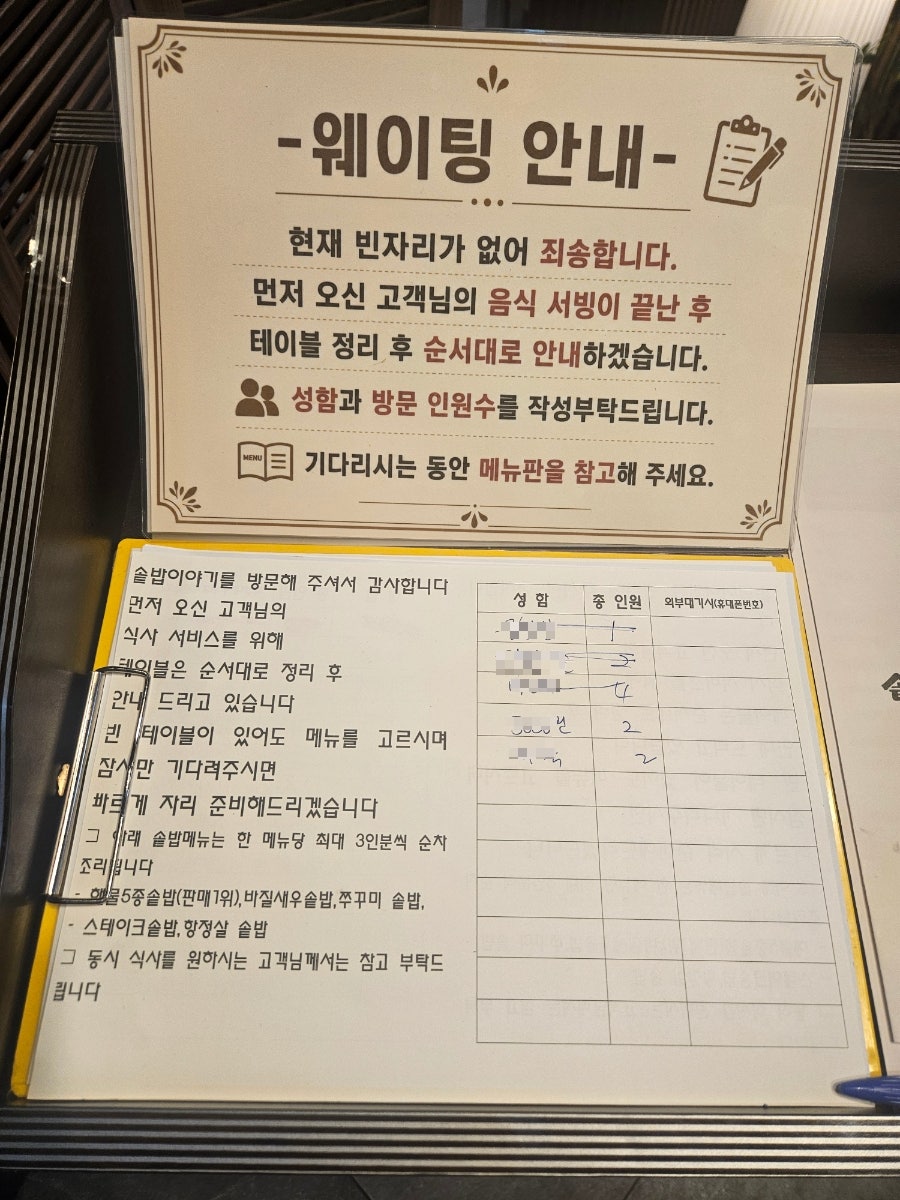 -웨이팅 안내-
현재 빈자리가 없어 죄송합니다.
먼저 오신 고객님의 음식 서빙이 끝난 후
테이블 정리 후 순서대로 안내하겠습니다.
성함과 방문 인원수를 작성부탁드립니다.
MENU
기다리시는 동안 메뉴판을 참고해 주세요.
솥밥이야기를 방문해 주셔서 감사합니다
먼저 오신 고객님의
식사 서비스를 위해
테이블은 순서대로 정리 후
안내 드리고 있습니다
빈 테이블이 있어도 메뉴를 고르시며
잠시만 기다려주시면
빠르게 자리 준비해드리겠습니다
그 아래 솥밥메뉴는 한 메뉴당 최대 3인분씩 순차
조리됩니다
- 해물5종솥밥(판매1위),바질새우솥밥,쭈꾸미 솥밥,
- 스테이크솥밥,항정살 솥밥
그 동시 식사를 원하시는 고객님께서는 참고 부탁드
립니다
성 함 총 인원 외부대기시(휴대폰번호)
1
2
4
2
2